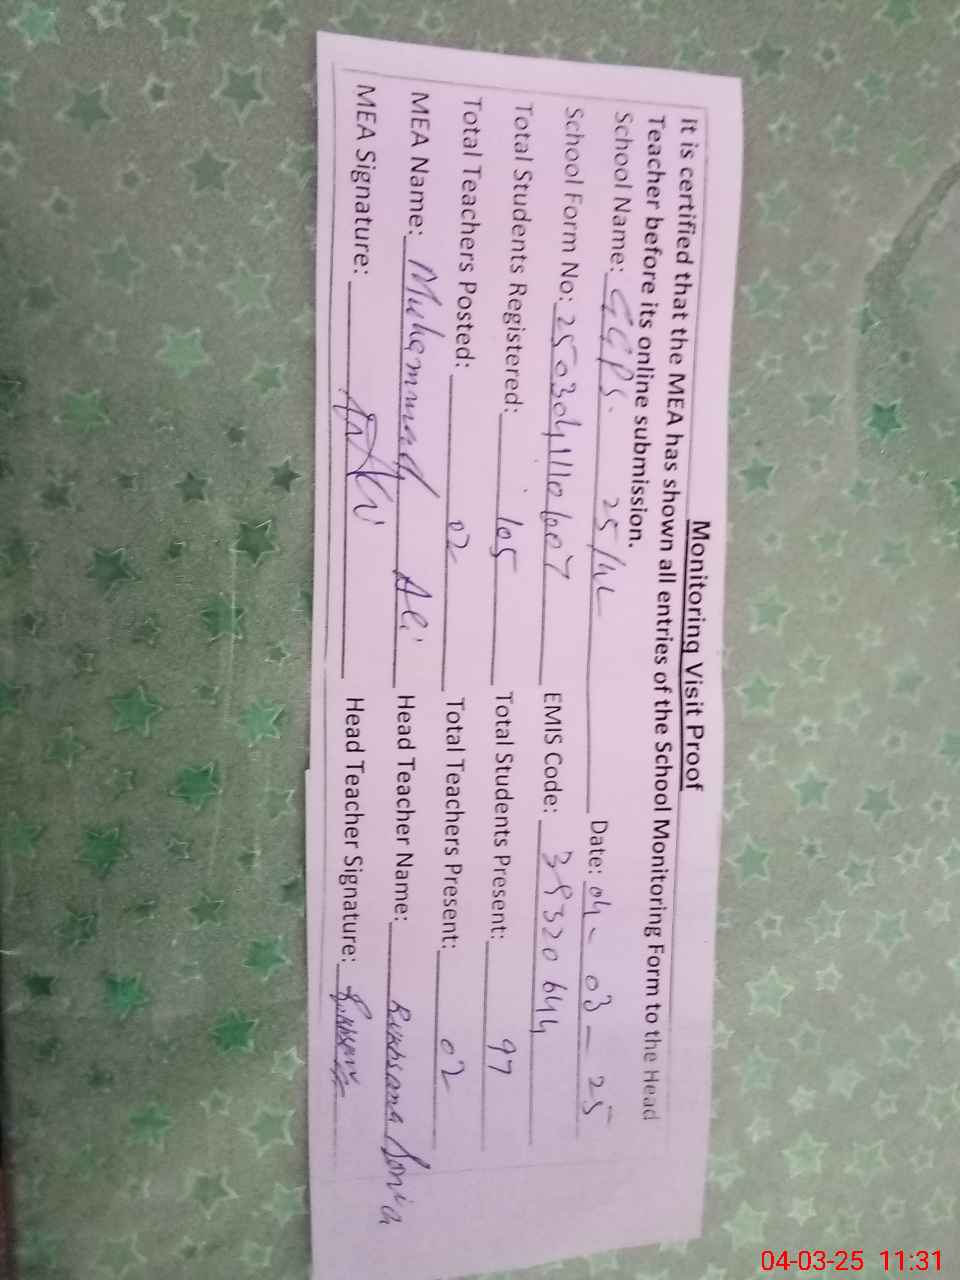 Monitoring Visit Proof
It is certified that the MEA has shown all entries of the School Monitoring Form to the Head
Teacher before its online submission.
School Name: GGPS. 25/4L Date: 04-03-25
School Form No: 2503041110607 EMIS Code: 39320644
Total Students Registered: 105 Total Students Present: 97
Total Teachers Posted: 02 Total Teachers Present: 02
MEA Name: Muhammad Ali Head Teacher Name: Rukhsana Sonia
MEA Signature: Head Teacher Signature:
04-03-25 11:31